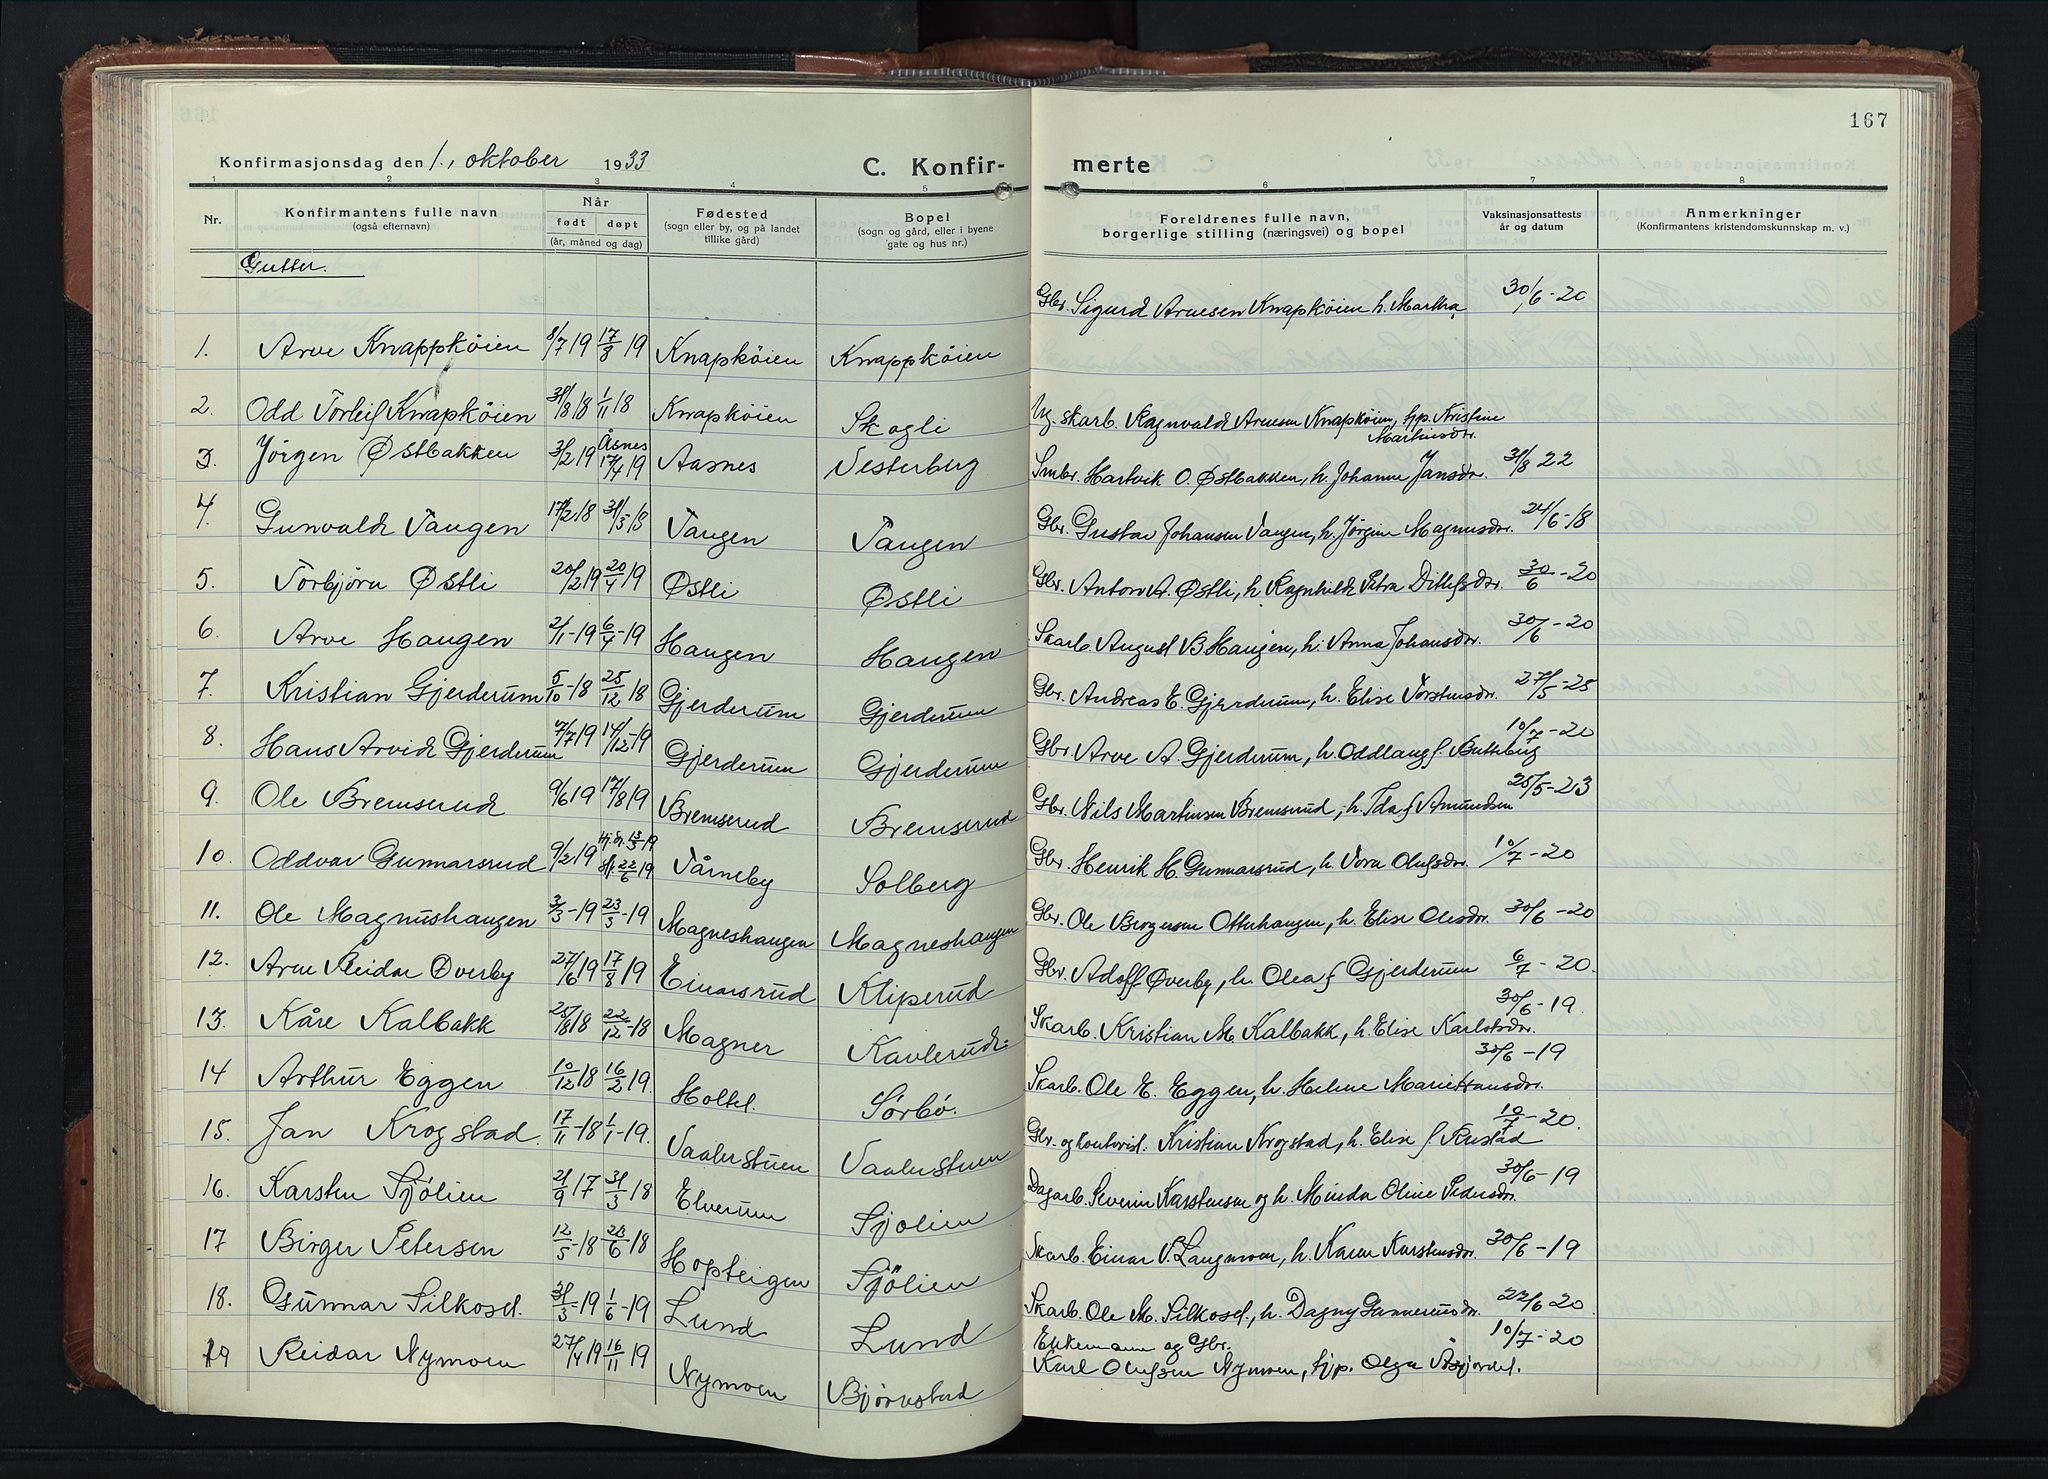 167
Konfirmasjonsdag den 1., oktober 1933 C. Konfir- merte
1 2 3 4 5 6 7 8
Nr. Konfirmantens fulle navn (også efternavn) Når født døpt (år, måned og dag) Fødested (sogn eller by, og på landet tillike gård) Bopel (sogn og gård, eller i byene gate og hus nr.) Foreldrenes fulle navn, borgerlige stilling (næringsvei) og bopel Vaksinasjonsattests år og datum Anmerkninger (Konfirmantens kristendomskunnskap m. v.)
Gutter.
1. Arve Knappköien 8/7 19 17/8 19 Knapköien Knappköien Gbr. Sigurd Arnesen Knapköien h. Martha 30/6-20
2. Odd Torleif Knapköien 31/8 18 1/11 18 Knapköien Skogli Ug. skarb. Ragnvald Arnesen Knapköien, Kristine Martinsdr.
3. Jörgen Østbakken 3/2 19 Åsnes 17/4 19 Aasnes Vesterberg Smbr. Hartvik O. Østbakken, h. Johanne Jansdr. 31/8 22
4. Gunvald Tangen 17/2 18 31/3 18 Tangen Tangen Gbr. Gustav Johansen Tangen, h. Jörgine Magnusdr. 24/6-18
5. Torbjörn Østli 20/2 19 20/4 19 Østli Østli Gbr. Anton A. Østli, h. Ragnhild Petra Ditlefsdr. 30/6-20
6. Arve Haugen 2/1-19 6/4-19 Haugen Haugen Skarb. August B Haugen, h. Anna Johansdr. 30/6-20
7. Kristian Gjerderum 5/10-18 25/12 18 Gjerderum Gjerderum Gbr. Andreas E. Gjerderum, h. Elise Torstensdr. 27/5-25
8. Hans Arvid Gjerderum 7/7 19 14/12-19 Gjerderum Gjerderum Gbr. Arve A. Gjerderum, h. Oddlaug f. Butteberg 10/7-20
9. Ole Bremsrud 9/6 19 17/8 19 Bremserud Bremserud Gbr. Nils Martinsen Bremsrud, h. Ida f Amundsen 25/5-23
10. Oddvar Gunnarsrud 9/2 19 Hj.d. 13/3-19 22/6 19 Tårneby Solberg Gbr. Henrik H. Gunnarsrud, h. Tora Olufsdr. 10/7-20
11. Ole Magnushaugen 3/3-19 23/3-19 Magneshaugen Magneshaugen Gbr. Ole Otterhaugen, h. Elise Olesdr. 30/6-20
12. Arne Reidar Øverby 27/6 19 17/8 19 Einarsrud Kliperud Gbr. Adolf Øverby, h. Olea f Gjerderum 6/7-20.
13. Kåre Kalbakk 25/8 18 22/12-18 Magner Kavlerud Skarb. Kristian M. Kalbakk, h. Elise Karlsdr. 30/6-19.
14 Arthur Eggen 10/12 18 16/2 19. Holtet. Sörbö. Skarb. Ole E. Eggen, h. Helene Marie Hansdr. 30/6-19
15. Jan Krogstad. 17/11-18 1/1-19. Vaalerstuen Vaalerstuen Gbr. og kontorist. Kristian Krogstad, h. Elise f. Rustad 10/7-20.
16. Karsten Sjölien 21/9 17 31/3 18 Elverum Sjölien Dagarb. Severin Karstensen og h. Minda Oline Pedersdr. 30/6-19
17 Birger Petersen 12/5-18 23/6 18 Hopteigen Sjölien Skarb. Einar P. Langmoen, h. Karen Karstensdr. 30/6-19
18. Gunnar Silkoset. 31/3-19 1/6-19 Lund Lund Skarb. Ole M. Silkoset, h. Dagny Gunneriusdr. 22/6 20.
19 Reidar Nymoen 27/4 19 16/11 19 Nymoen Björnstad Enkemann og Gbr. Karl Olufsen Nymoen, Olga Asjordet. 10/7-20